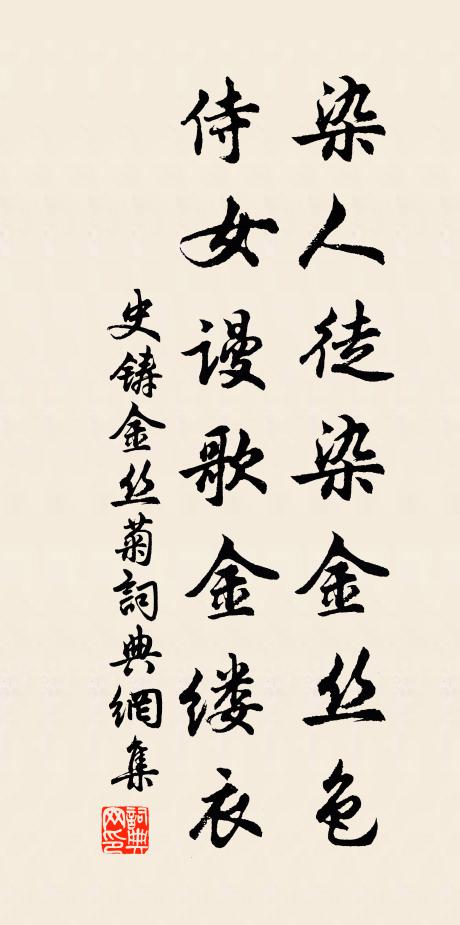 染人徒染金丝色
侍女谩歌金缕衣
史铸金丝菊詞典網集
詞典网印